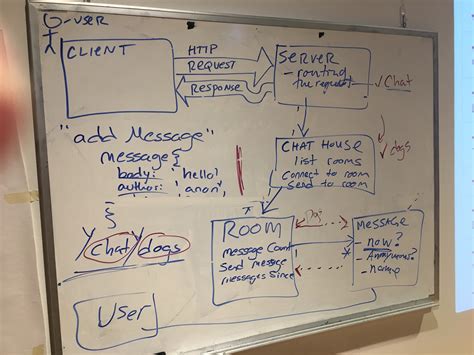 USER
CLIENT
HTTP
REQUEST
RESPONSE
SERVER
- routing
the request
√ Chat
"add Message"
message {
body: 'hello'
author: 'anon',
}
CHAT HOUSE
list rooms
connect to room
send to room
√ dogs
/chat/dogs
ROOM
message count
Send message
messages since
MESSAGE
- now?
- Anonymous?
- name
User